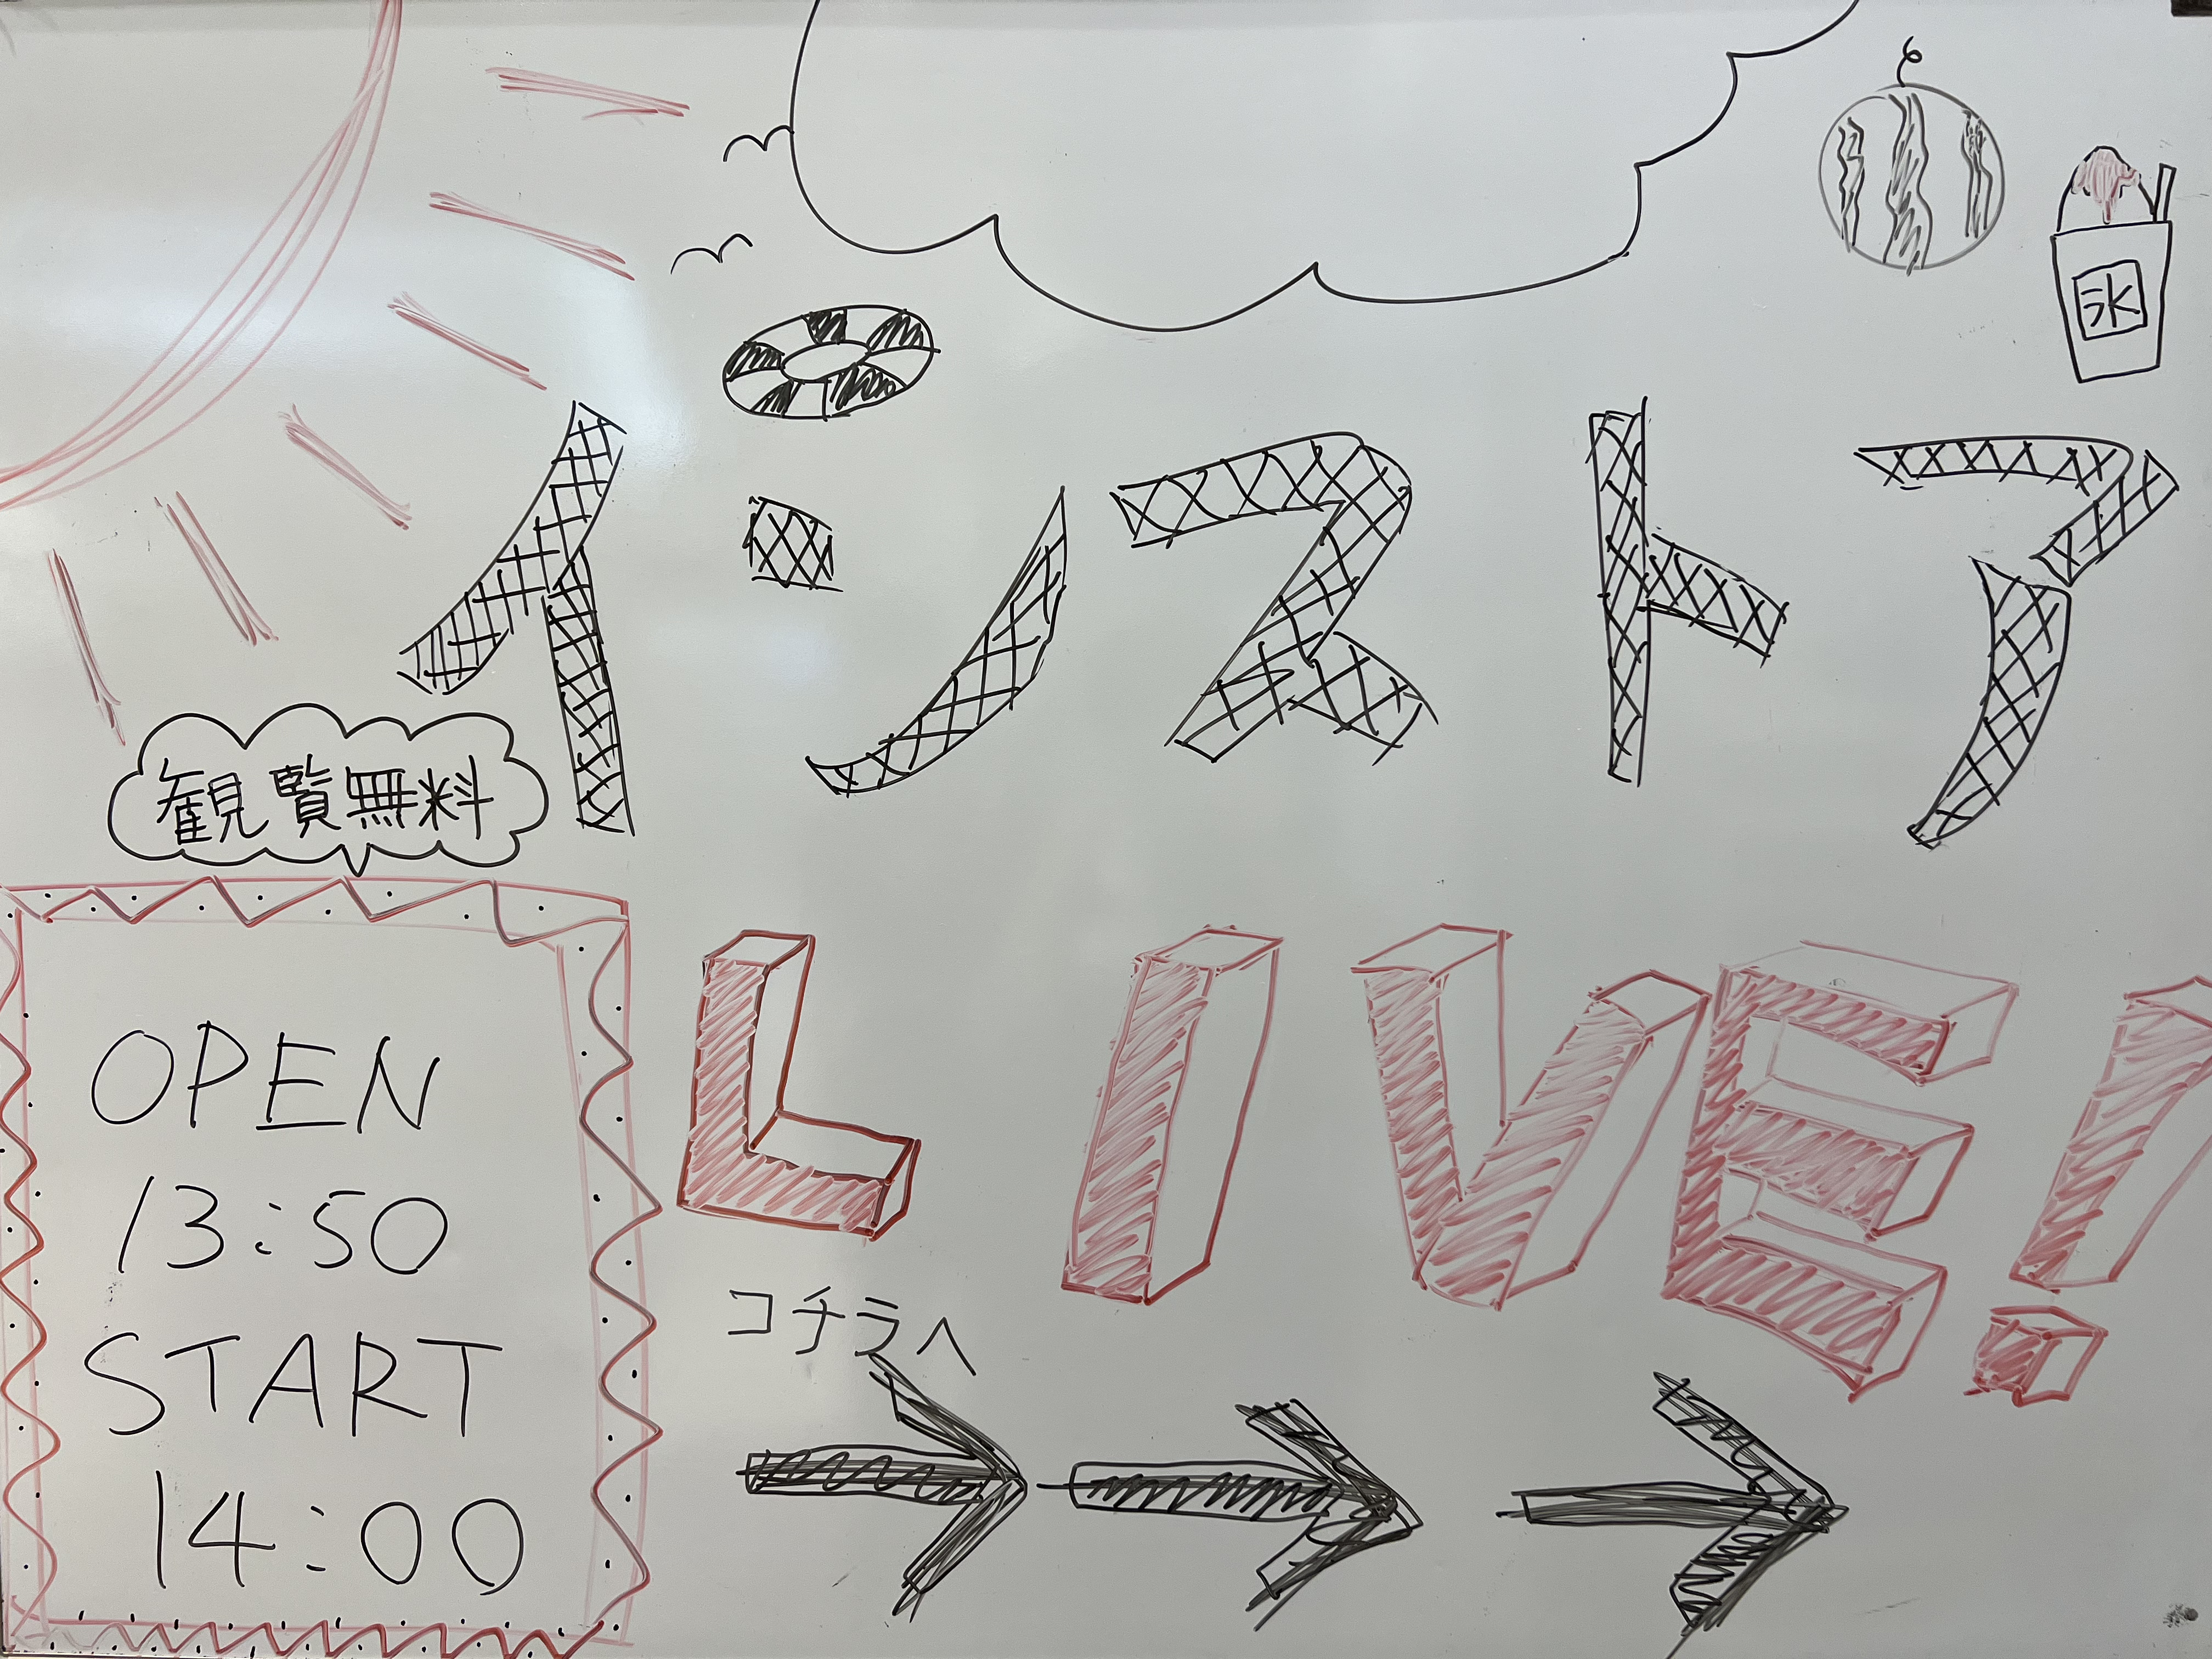 氷
インストア
観覧無料
LIVE!
OPEN
13:50
START
14:00
コチラへ